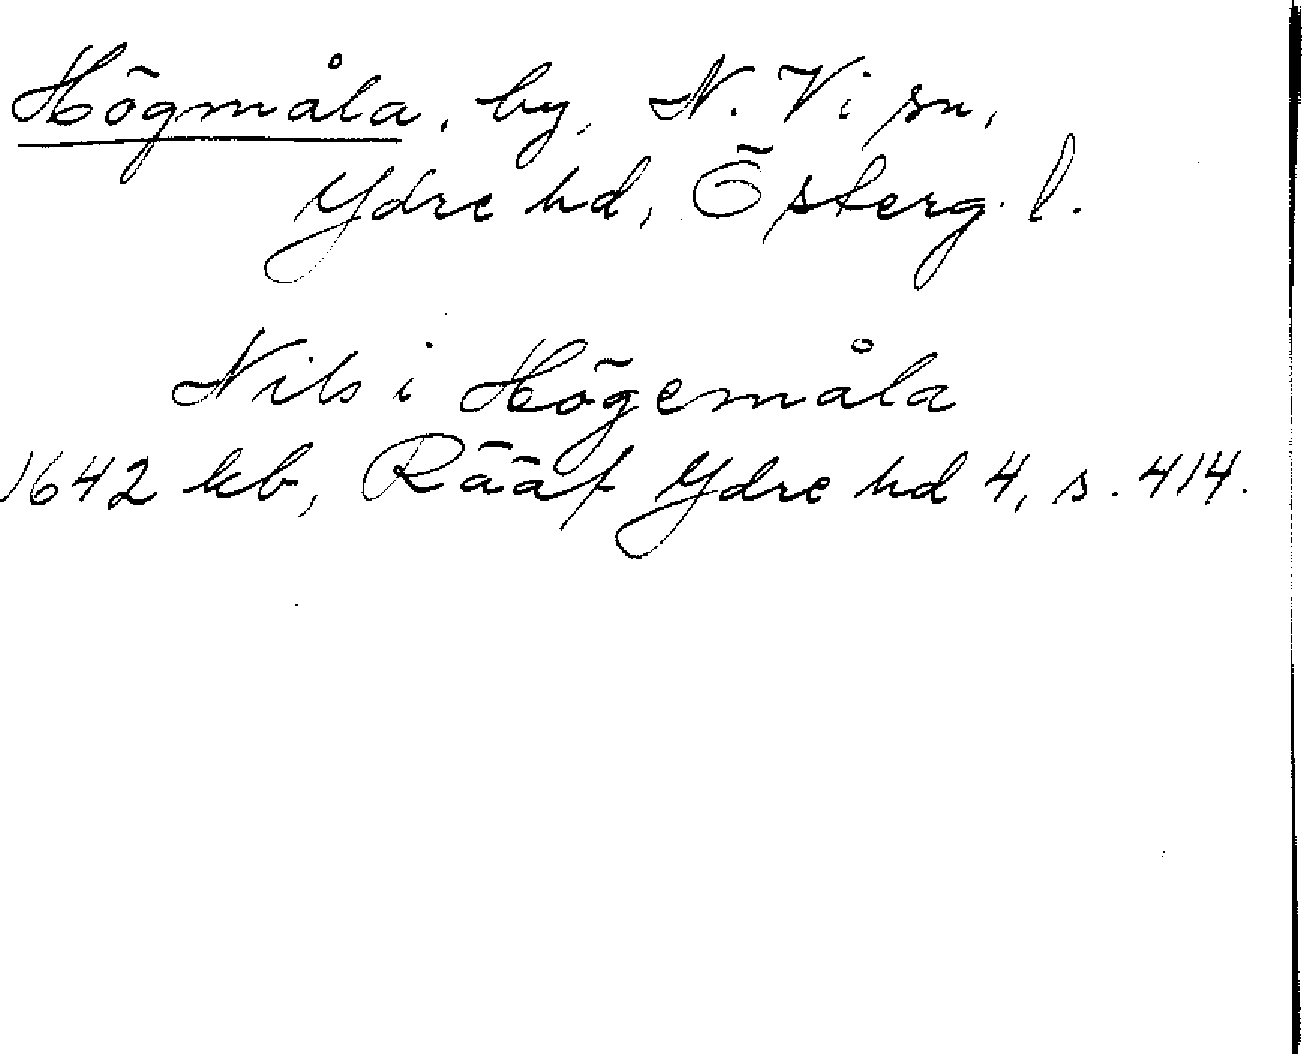 Högmåla, by, N. Vi sn,
Ydre hd, Österg. l.
Nils i Högemåla
1642 kb, Rääf Ydre hd 4, s. 414.